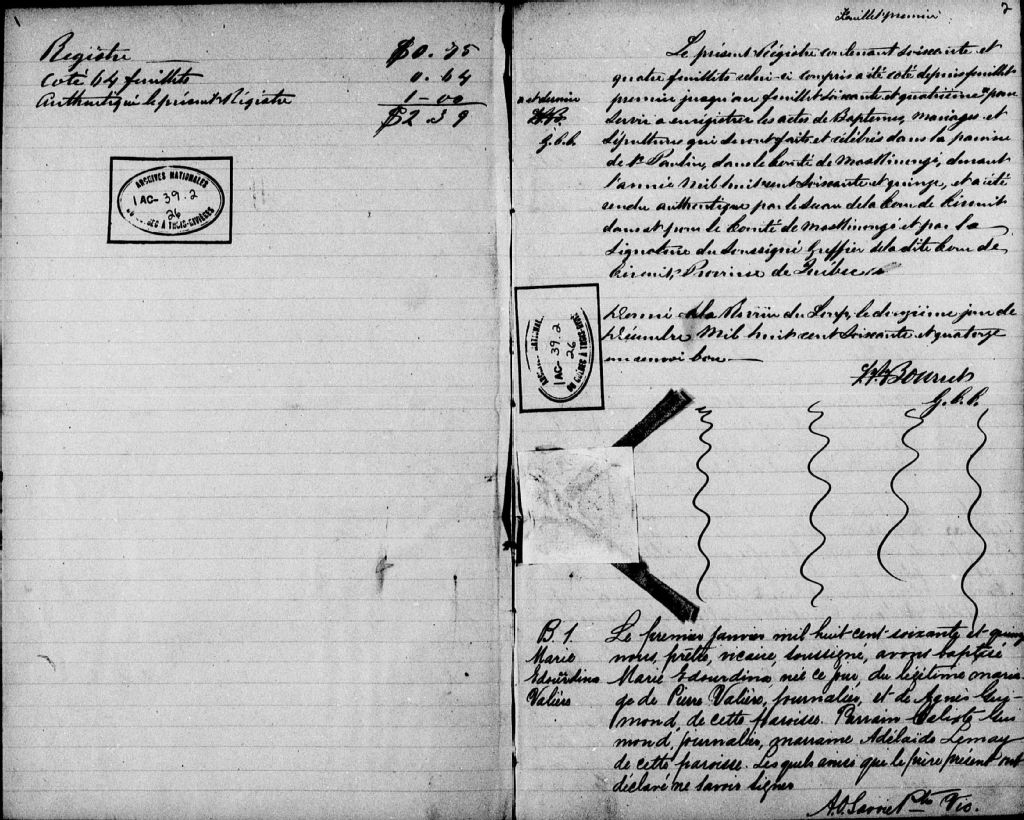 1
Registre $0.75
Coté 64 feuillets 0.64
Authentiqué le présent Régistre 1-00
$2.39
ARCHIVES NATIONALES
1AC-39.2
26
DU QUÉBEC À TROIS-RIVIÈRES
2
Feuillet premier
Le présent Régistre contenant soixante et
quatre feuillets celui-ci compris a été coté depuis feuillet
premier jusqu'au feuillet soixante et quatrième pour
servir a enregistrer les actes de Baptemes, Mariages et
Sépultures qui seront faits et célébrés dans la paroisse
de St Paulin, dans le Comté de Maskinongé, durant
l'année mil huit cent soixante et quinze, et a été
rendu authentique par le sceau de la Cour de Circuit
dans et pour le Comté de Maskinongé et par la
signature du soussigné Greffier de la dite Cour de
Circuit, Province de Québec
x et dernier
G.C.C.
Donné à la Rivière du Loup, le douzième jour de
Décembre Mil huit cent soixante et quatorze
un renvoi bon
ARCHIVES NATIONAL
1AC-39.2
26
DU QUÉBEC À TROIS-RIVI
G.C.C.
B. 1.
Marie
Edourdina
Valière
Le premier janvier mil huit cent soixante et quinze
nous, prêtre, vicaire, soussigné, avons baptisé
Marie Edourdina née ce jour, du légitime maria-
ge de Pierre Valière, journalier, et de Agnès Guy-
mond, de cette paroisse. Parrain Calixte Gui
mond, journalier, marraine Adélaïde Lemay
de cette paroisse. Lesquels ainsi que le père présent ont
déclaré ne savoir signer
Ptre Vic.